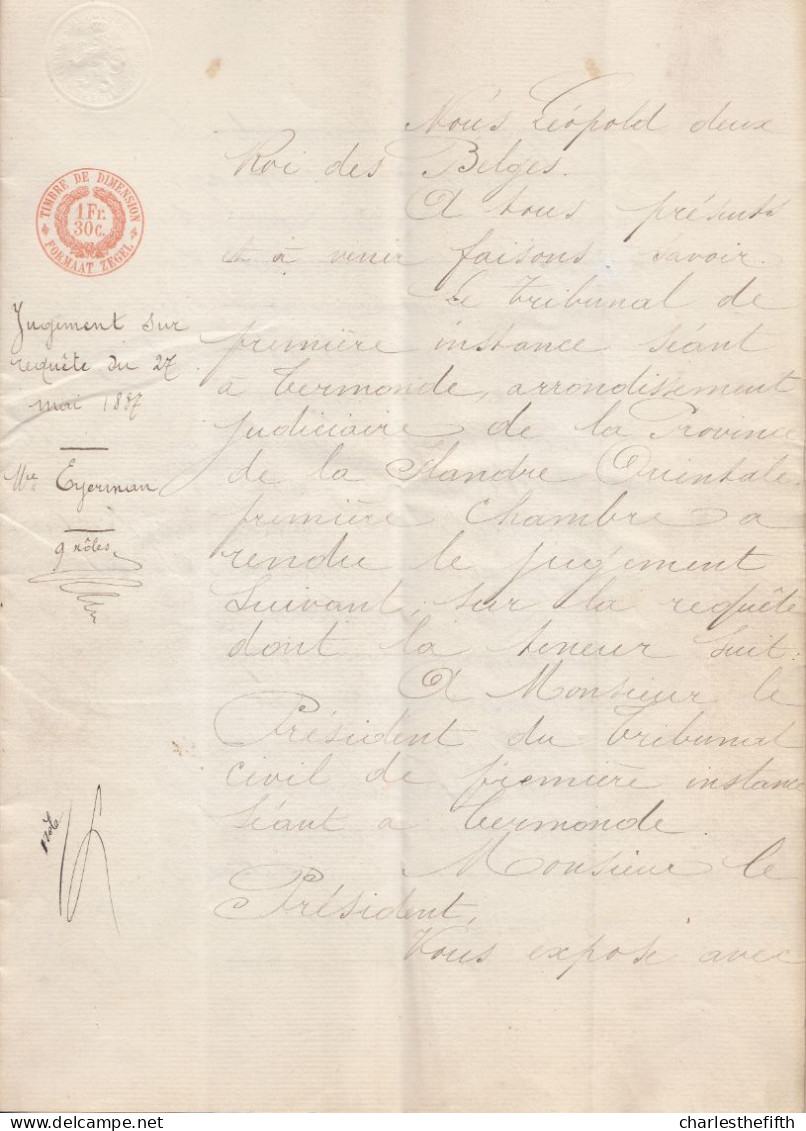 TIMBRE DE DIMENSION
1 Fr.
30 c.
FORMAAT ZEGEL
Jugement sur
requête du 27
mai 1887
Me Eyerman
9 rôles
Nous Léopold deux
Roi des Belges.
A tous présents
et à venir faisons savoir.
Le tribunal de
première instance séant
à Termonde, arrondissement
judiciaire de la Province
de la Flandre Orientale,
première chambre a
rendu le jugement
suivant, sur la requête
dont la teneur suit:
A Monsieur le
Président du tribunal
civil de première instance
séant a Termonde.
Monsieur le
Président,
Vous expose avec
charlesthefifth